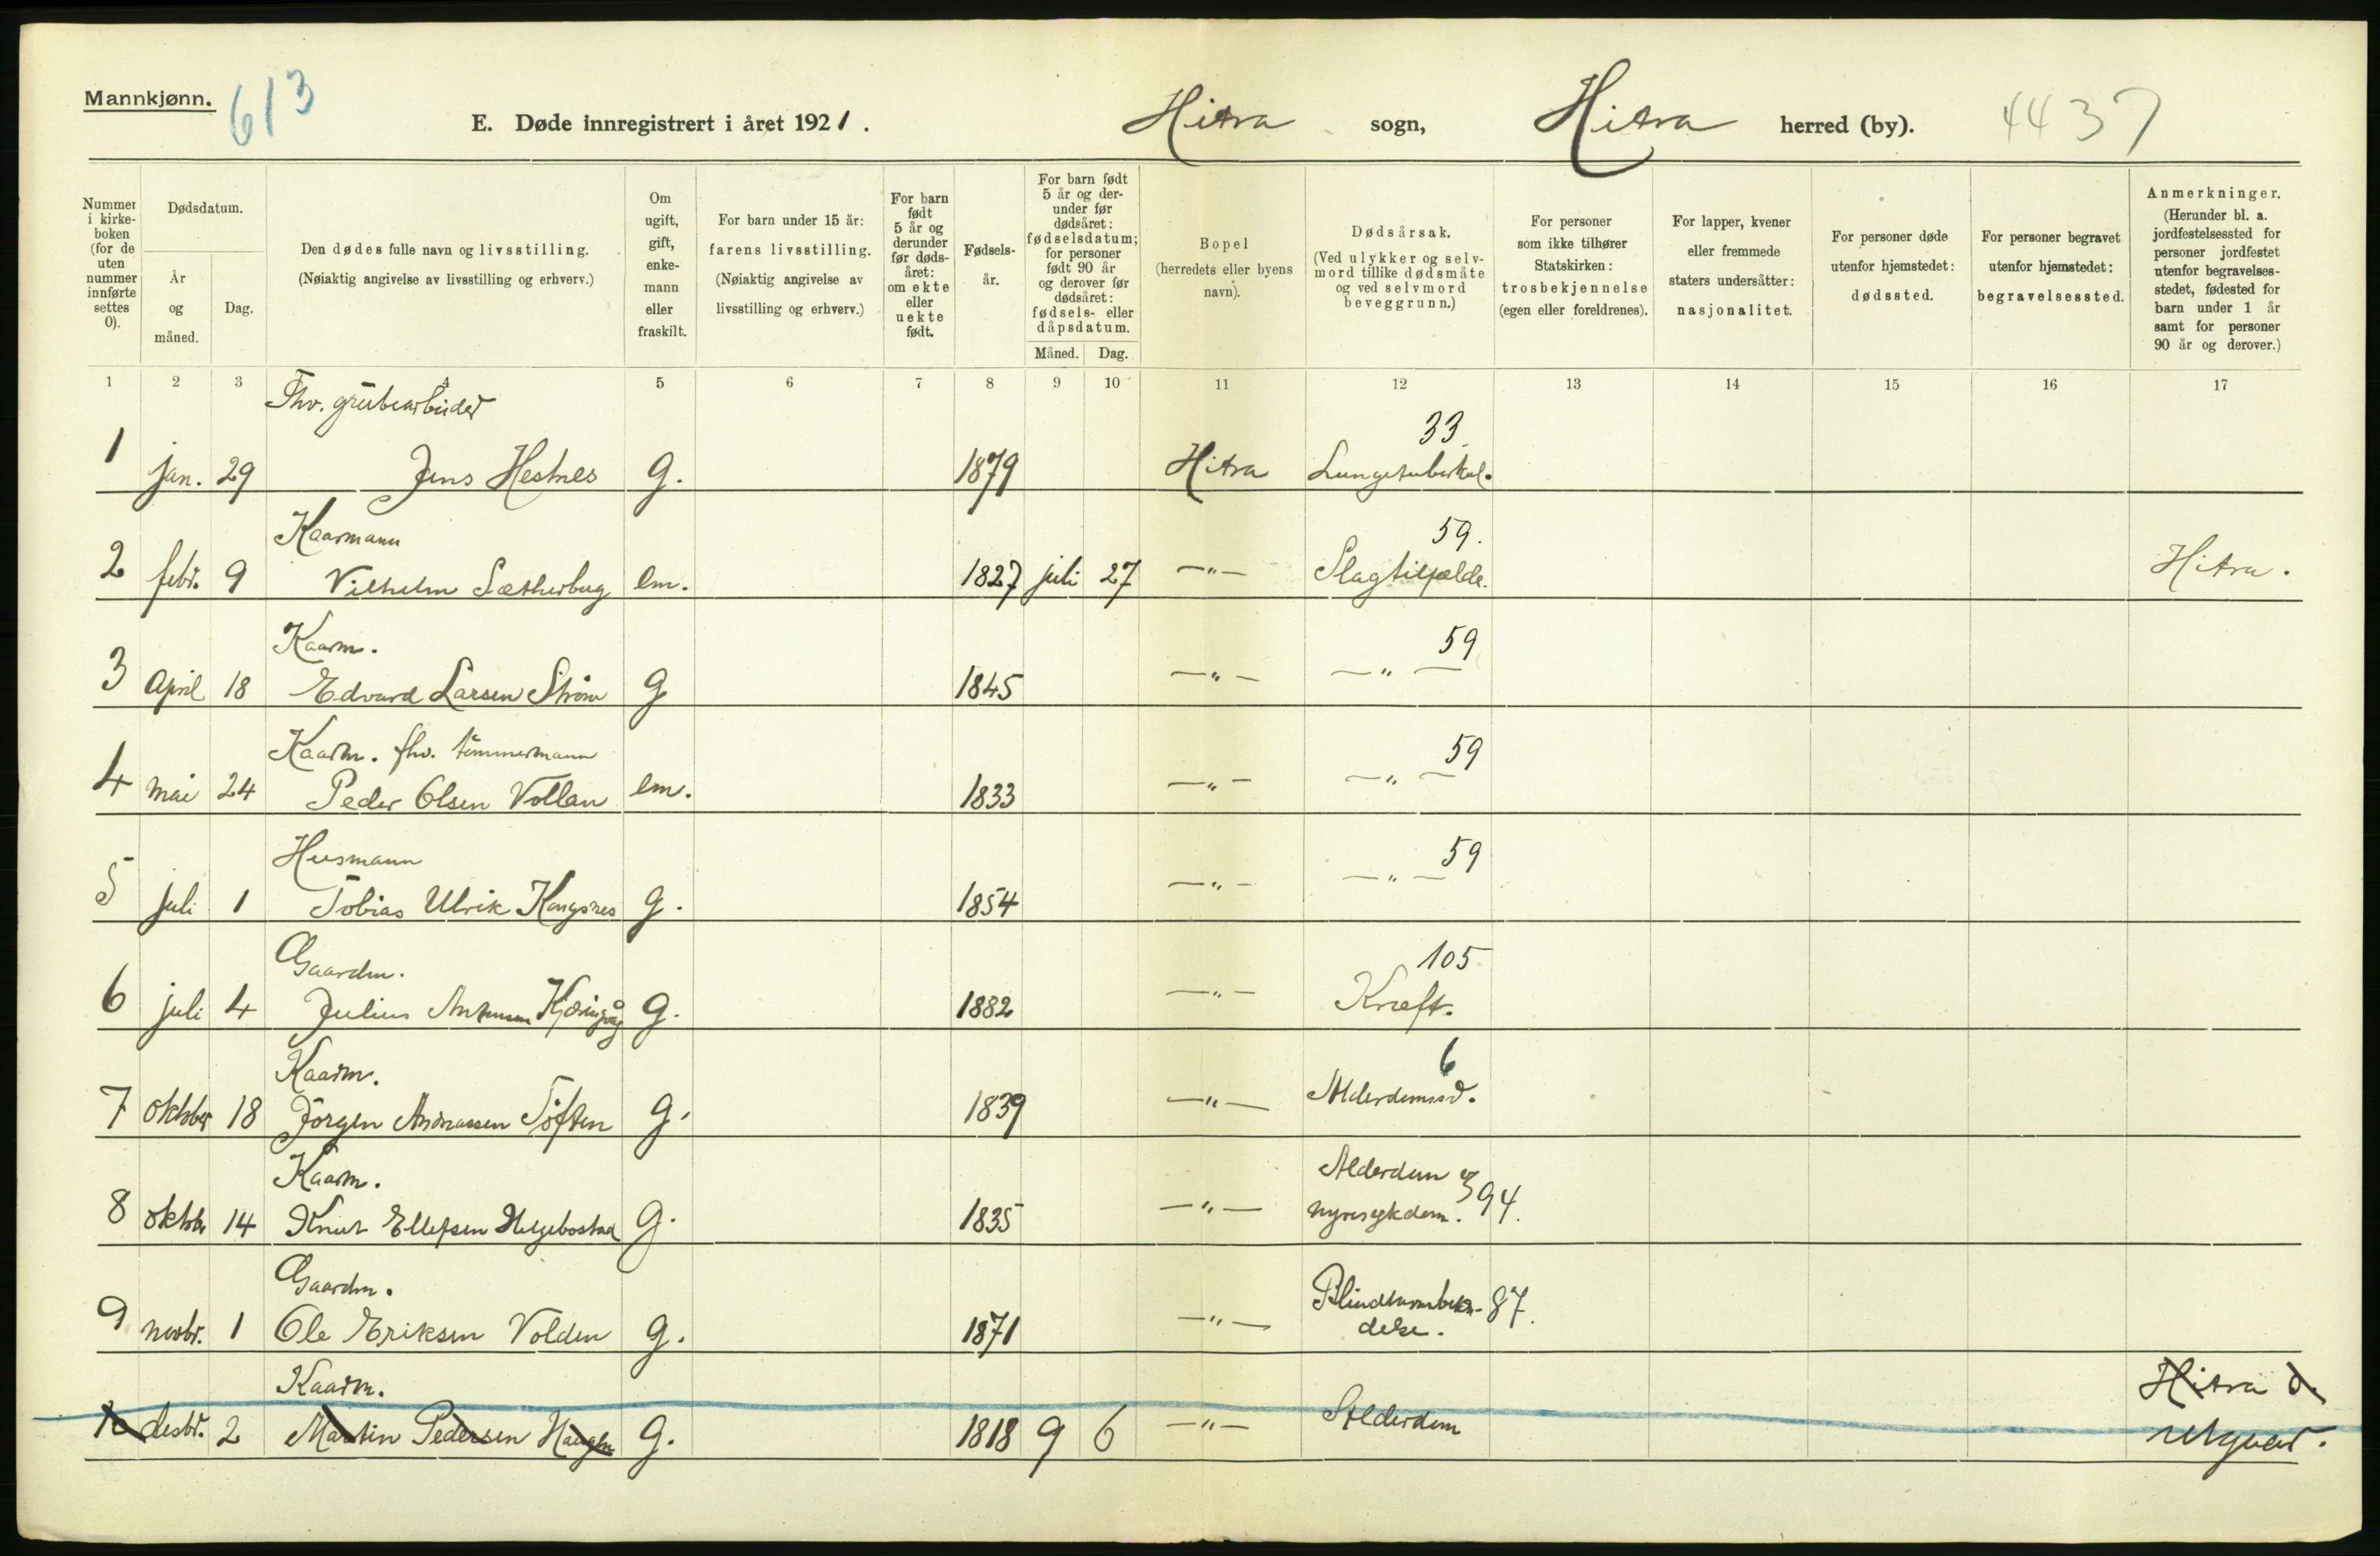 Mannkjønn.
613
E. Døde innregistrert i året 1921.
Hitra sogn, Hitra herred (by). 4437
Nummer i kirkeboken (for de uten nummer innførte settes 0).
Dødsdatum.
År og måned.
Dag.
Den dødes fulle navn og livsstilling.
(Nøiaktig angivelse av livsstilling og erhverv.)
Om ugift, gift, enkemann eller fraskilt.
For barn under 15 år: farens livsstilling. (Nøiaktig angivelse av livsstilling og erhverv.)
For barn født 5 år og derunder før dødsåret: om ekte eller uekte født.
Fødselsår.
For barn født 5 år og derunder før dødsåret: fødselsdatum; for personer født 90 år og derover før dødsåret: fødsels- eller dåpsdatum.
Måned. Dag.
Bopel (herredets eller byens navn).
Dødsårsak. (Ved ulykker og selvmord tillike dødsmåte og ved selvmord beveggrunn.)
For personer som ikke tilhører Statskirken: trosbekjennelse (egen eller foreldrenes).
For lapper, kvener eller fremmede staters undersåtter: nasjonalitet.
For personer døde utenfor hjemstedet: dødssted.
For personer begravet utenfor hjemstedet: begravelsessted.
Anmerkninger. (Herunder bl. a. jordfestelsessted for personer jordfestet utenfor begravelsesstedet, fødested for barn under 1 år samt for personer 90 år og derover.)
1 2 3 4 5 6 7 8 9 10 11 12 13 14 15 16 17
Fhv. grubearbeider 33.
1 jan. 29 Jens Hestnes G. 1879 Hitra Lungetuberkul.
Kaarmann 59.
2 febr. 9 Vilhelm Sætherbug em. 1827 juli 27 —"— Slagtilfælde. Hitra.
Kaarm. 59
3 April 18 Edvard Larsen Strøm G 1845 —"— —"—
Kaarm. fhv. tømmermann 59
4 mai 24 Peder Olsen Vollan em. 1833 —"— —"—
Husmann 59
5 juli 1 Tobias Ulrik Kongsnes g. 1854 —"— —"—
Gaardm. 105
6 juli 4 Julius g. 1882 —"— Kræft.
Kaarm. 6
7 oktober 18 Jørgen Andreassen Tøften g. 1839 —"— Alderdomssv.
Kaarm. Alderdom og
8 oktob. 14 Knut Ellefsen Helgebostad g. 1835 —"— nyresykdom. 94.
Gaardm. Blindtarmbeten- 87.
9 novbr. 1 Ole Eriksen Volden g. 1871 —"— delse.
Kaarm. Hitra d.
10 desbr. 2 Martin Pedersen Haugen g. 1818 9 6 —"— Alderdom utgaar.